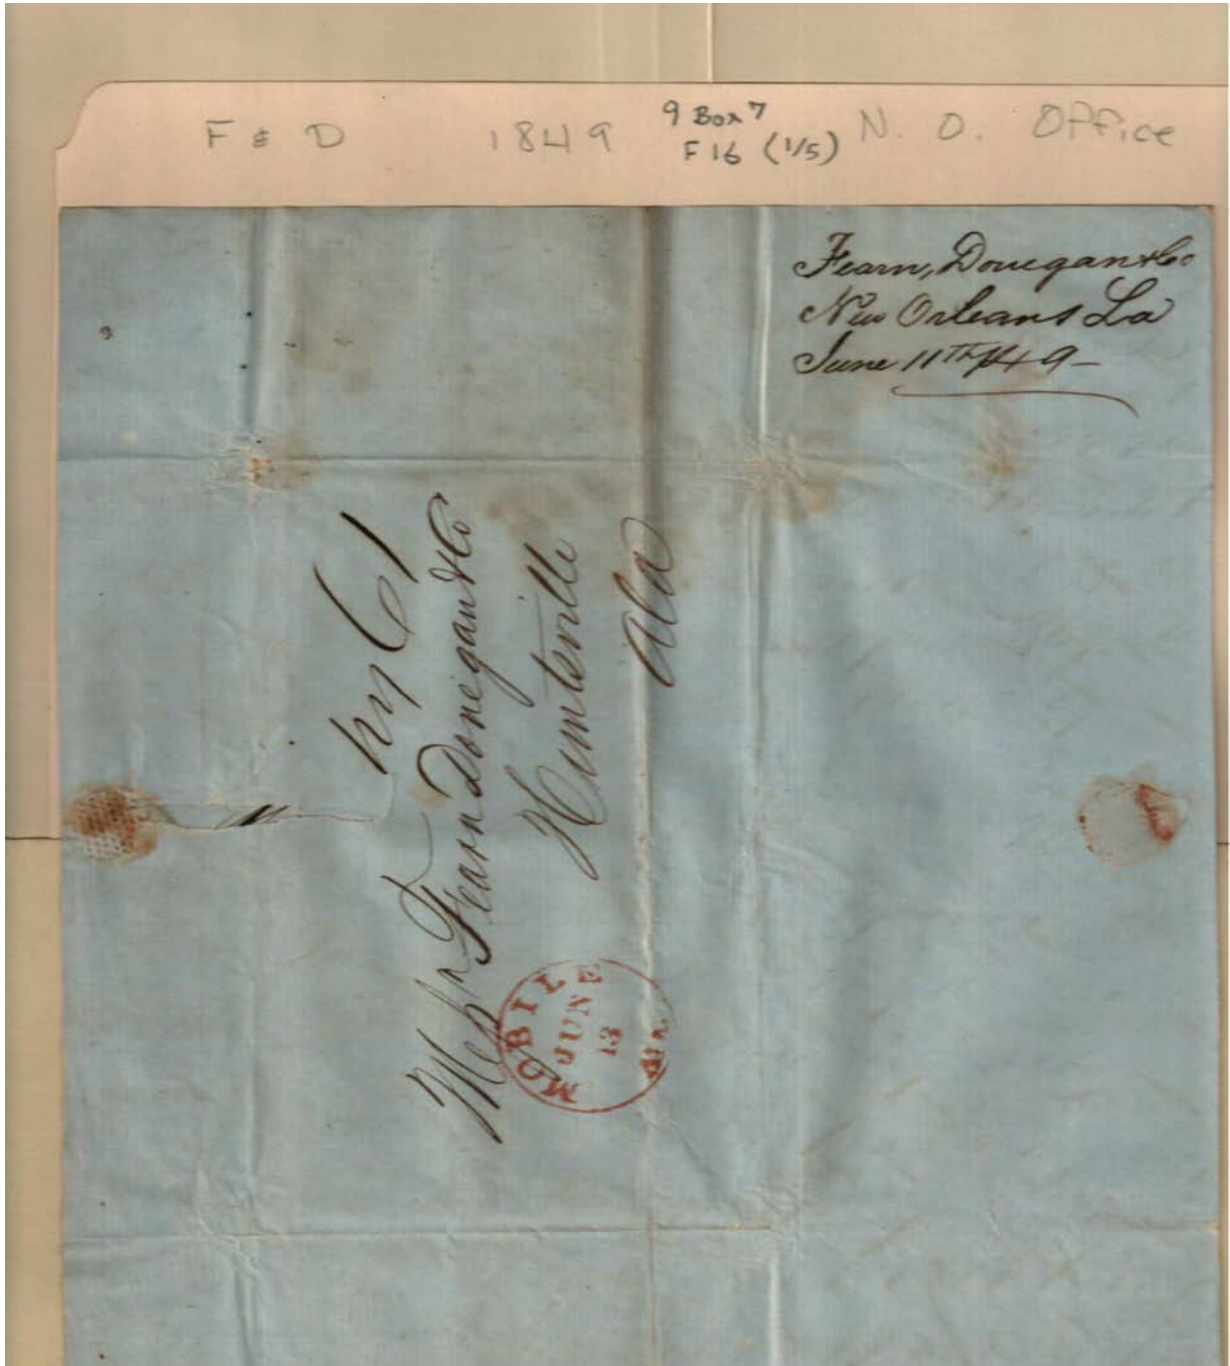 F & D 1849 9 Box 7 N. O. Office
F 16 (1/5)
Fearn, Donegan & Co
New Orleans La
June 11th /49
Messrs Fearn Donegan & Co
Huntsville
Ala
MOBILE
JUNE
13
Ala.